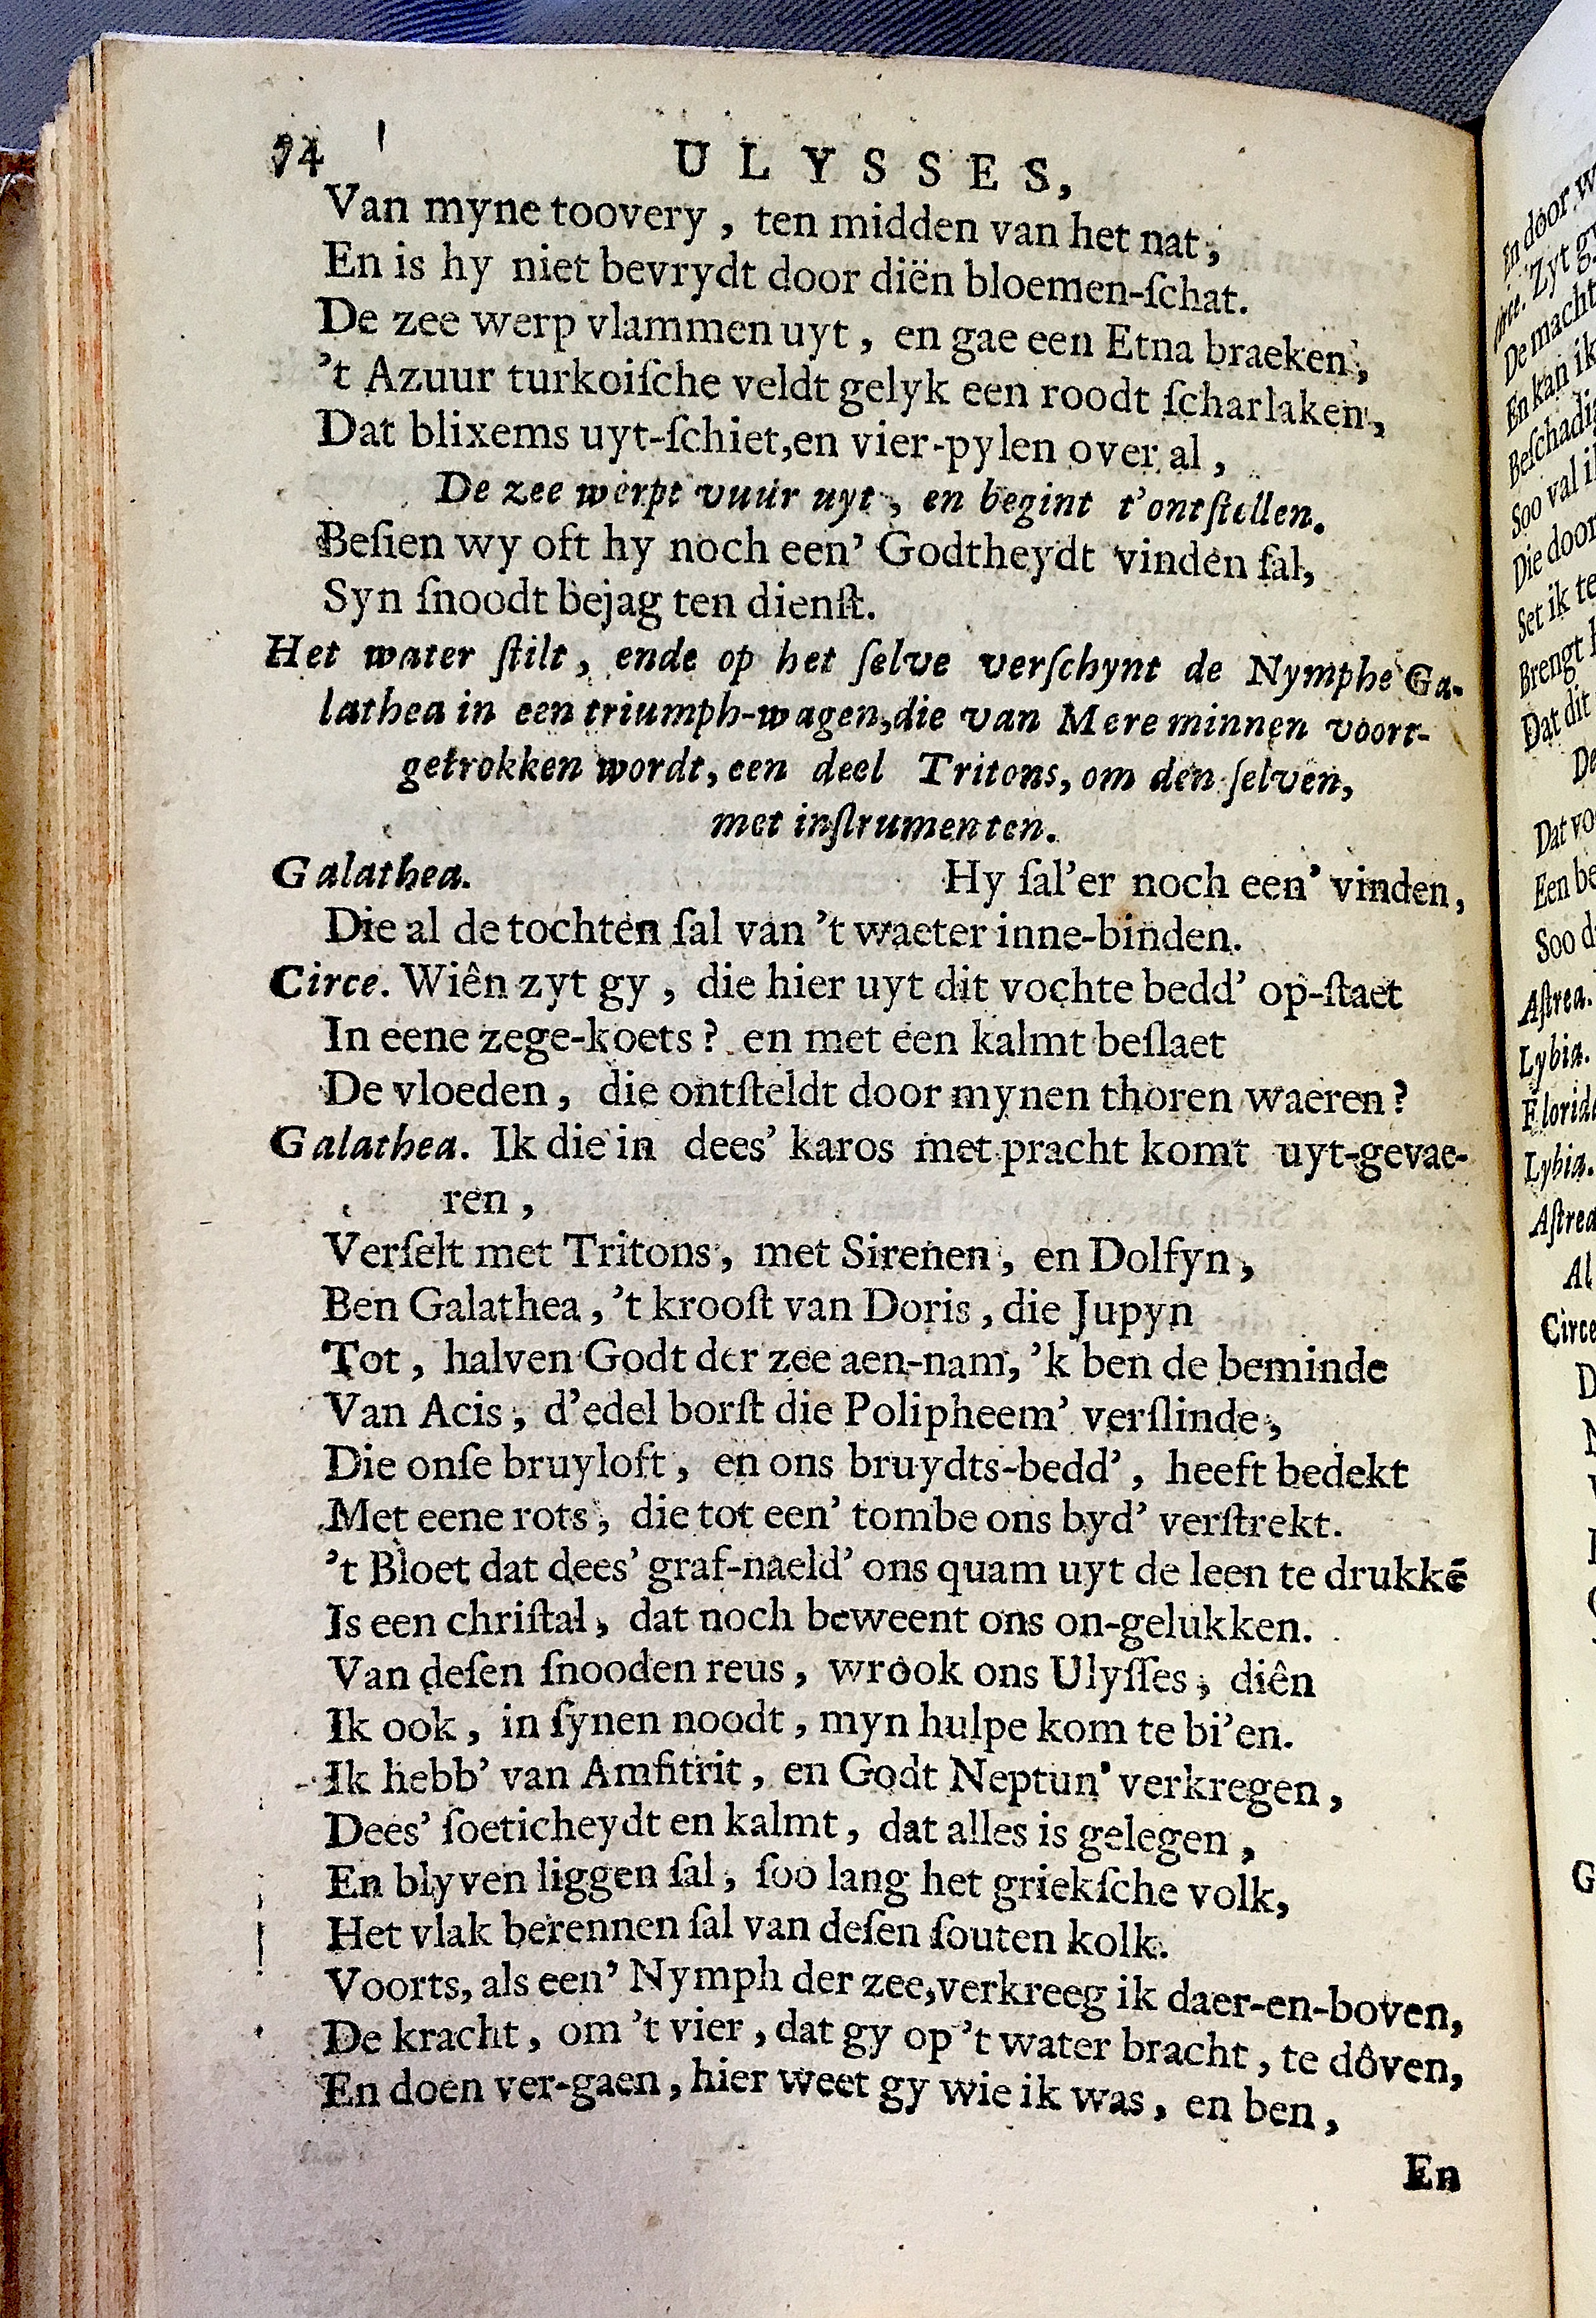 94 ULYSSES,
Van myne toovery , ten midden van het nat ,
En is hy niet bevrydt door diën bloemen-ſchat.
De zee werp vlammen uyt , en gae een Etna braeken ,
’t Azuur turkoiſche veldt gelyk een roodt ſcharlaken ,
Dat blixems uyt-ſchiet,en vier-pylen over al ,
De zee werpt vuur uyt , en begint t’ontſtellen.
Beſien wy oft hy noch een’ Godtheydt vinden ſal,
Syn ſnoodt bejag ten dienſt.
Het water ſtilt , ende op het ſelve verſchynt de Nymphe Ga-
lathea in een triumph-wagen,die van Mere minnen voort-
getrokken wordt, een deel Tritons, om den ſelven,
met inſtrumenten.
Galathea. Hy ſal’er noch een’ vinden,
Die al de tochten ſal van ’t waeter inne-binden.
Circe. Wiên zyt gy , die hier uyt dit vochte bedd’ op-ſtaet
In eene zege-koets ? en met een kalmt beſlaet
De vloeden , die ontſteldt door mynen thoren waeren ?
Galathea. Ik die in dees’ karos met pracht komt uyt-gevae-
ren ,
Verſelt met Tritons , met Sirenen , en Dolfyn ,
Ben Galathea , ’t krooſt van Doris , die Jupyn
Tot , halven Godt der zee aen-nam, ’k ben de beminde
Van Acis , d’edel borſt die Polipheem’ verſlinde ,
Die onſe bruyloft , en ons bruydts-bedd’ , heeft bedekt
Met eene rots , die tot een’ tombe ons byd’ verſtrekt.
’t Bloet dat dees’ graf-naeld’ ons quam uyt de leen te drukkē
Is een chriſtal , dat noch beweent ons on-gelukken.
Van deſen ſnooden reus , wrôok ons Ulyſſes , diên
Ik ook , in ſynen noodt , myn hulpe kom te bi’en.
Ik hebb’ van Amfitrit , en Godt Neptun’ verkregen ,
Dees’ ſoeticheydt en kalmt , dat alles is gelegen ,
En blyven liggen ſal , ſoo lang het griekſche volk,
Het vlak berennen ſal van deſen ſouten kolk.
Voorts, als een’ Nymph der zee,verkreeg ik daer-en-boven,
De kracht , om ’t vier , dat gy op ’t water bracht , te dôven,
En doen ver-gaen , hier weet gy wie ik was , en ben ,
En
En door
Zyt
De macht
En kan ik
Soo val
Die door
Set ik te
Brengt
Dat dit
De
Dat vo
Een be
Soo d
Aſtrea.
Lybia.
Lybia.
Al
Circe
G